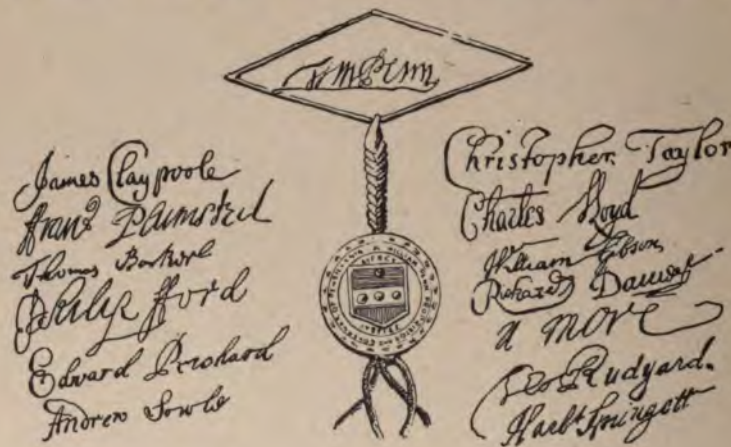 Wm Penn
James Claypoole
Franc Plumsted
Thomas Barker
Philip Ford
Edward Prichard
Andrew Sowle
Christopher Taylor
Charles Lloyd
William Gibson
Richard Davies
n more
Tho Rudyard.
Harbt Springett